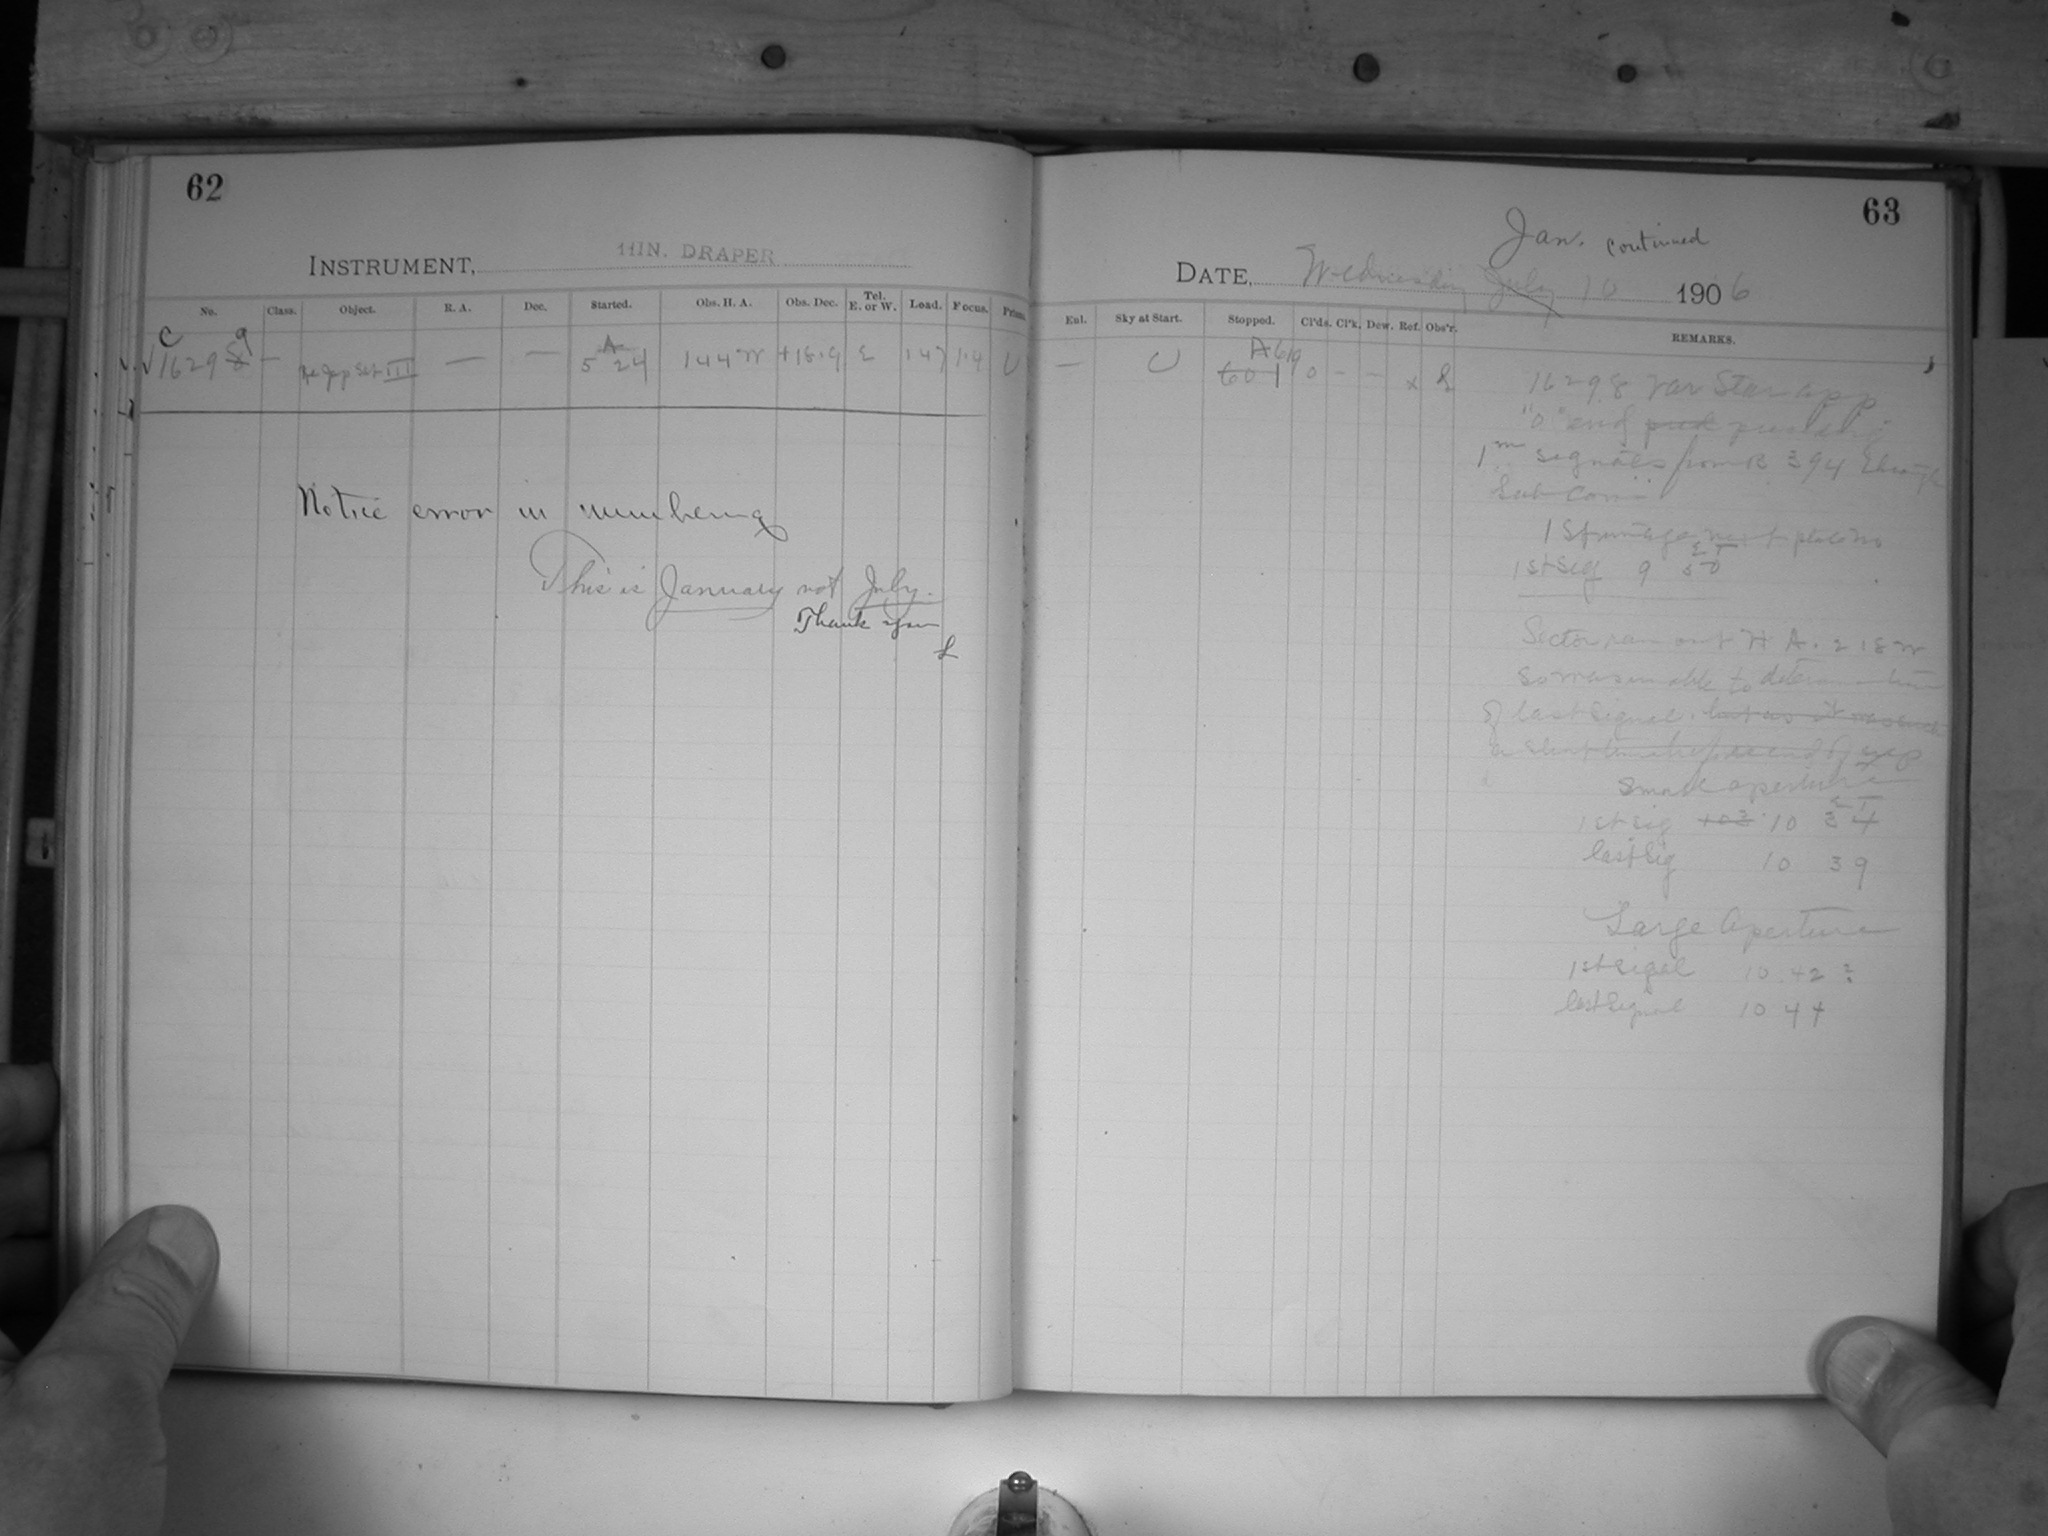 62
INSTRUMENT, 11IN. DRAPER
No. Class. Object. R. A. Dec. Started. Obs. H. A. Obs. Dec. Tel. E. or W. Load. Focus. Prism.
C 9
√16298 — III — — A 5 24 1 44 W +18.9 E 147 1.4 U
Notice error in numbering
This is January not July.
Thank you
L
63
Jan. continued
DATE, Wednesday July 10 1906
Eul. Sky at Start. Stopped. Cl'ds. Cl'k. Dew. Ref. Obs'r. REMARKS.
— U A 6 19 0 – – x L
6 0 1
16298 Var Star app
"0" end preceding
1m signals from B 394 through
1st sig 9 50
Sector ran out H A. 2 18 W
so was unable to determine time
of last signal.
Small aperture
1st sig 10 34
last sig 10 39
Large Aperture
1st signal 10 42 ?
last signal 10 44